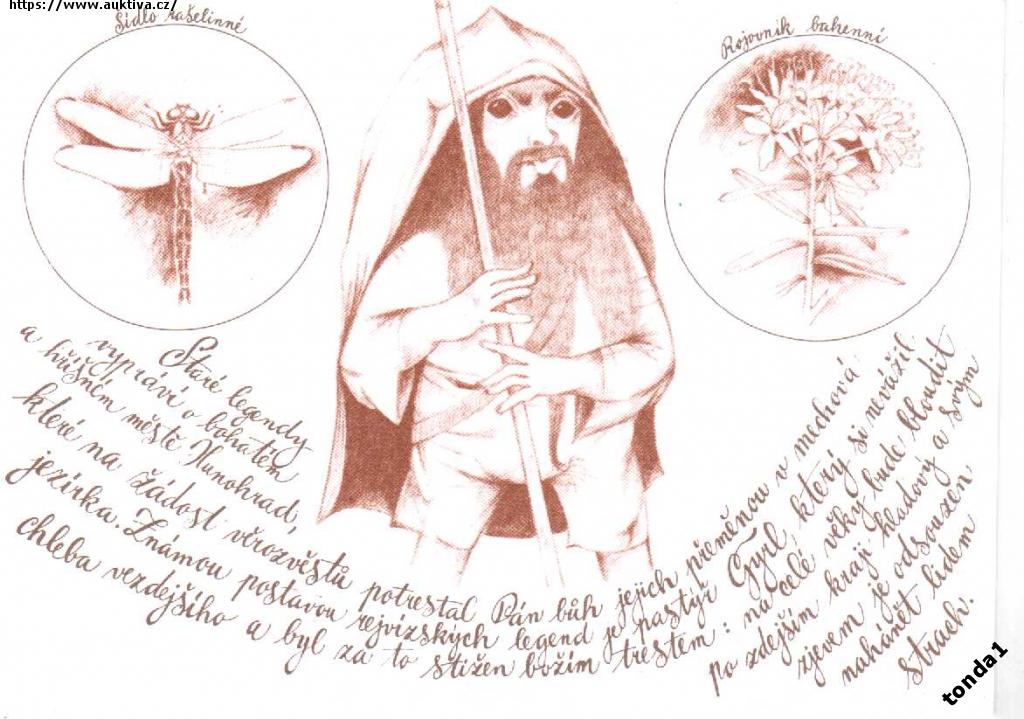 https://www.auktiva.cz/
Šídlo rašelinné
Rojovník bahenní
Staré legendy
vypraví o bohatém
a hříšném městě Hunohrad,
které na žádost věrozvěstů potrestal Pán bůh jejich přeměnou v mechová
jezírka. Známou postavou rejvízských legend je pastýř Gyil, který si nevážil
chleba vezdejšího a byl za to stižen božím trestem: na celé věky bude bloudit
po zdejším kraji hladový a svým
zjevem je odsouzen
nahánět lidem
strach.
tonda1